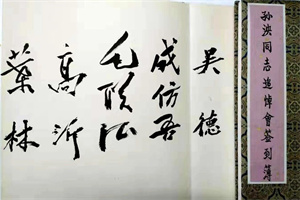 孙泱同志追悼会签到簿
吴德
成仿吾
毛联珏
高沂
葉林